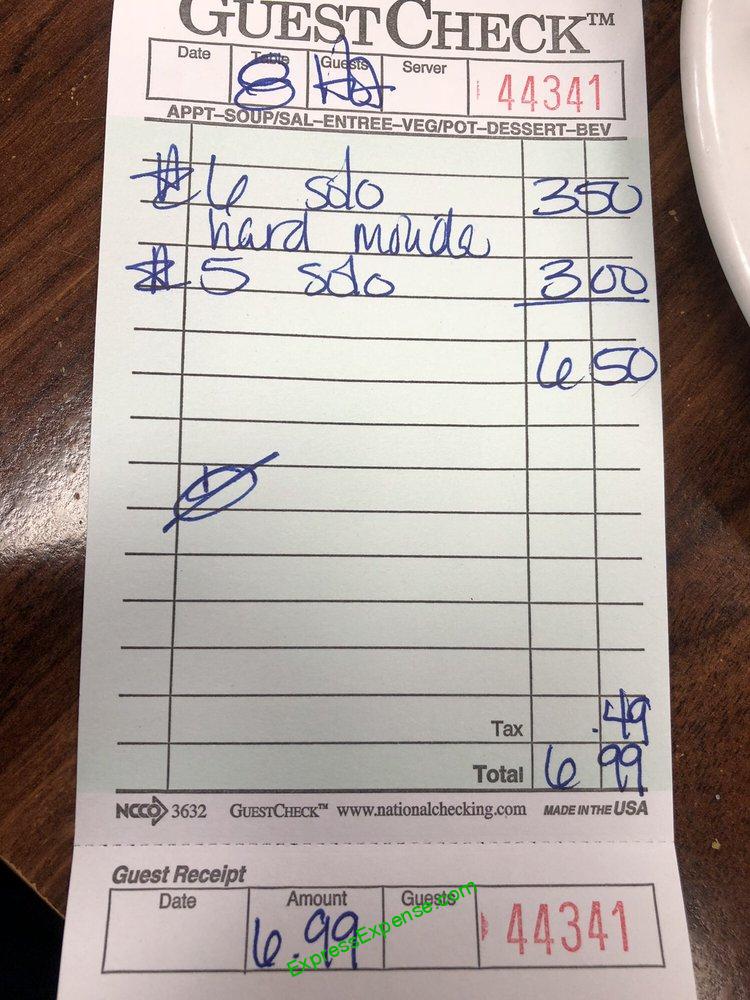 GUEST CHECK™
Date Table Guests Server
8 44341
APPT–SOUP/SAL–ENTREE–VEG/POT–DESSERT–BEV
#6 solo 350
hard
#5 solo 300
6 50
Tax .49
Total 6 99
NCCO 3632 GUESTCHECK™ www.nationalchecking.com MADE IN THE USA
Guest Receipt
Date Amount Guests
6.99 44341
ExpressExpense.com